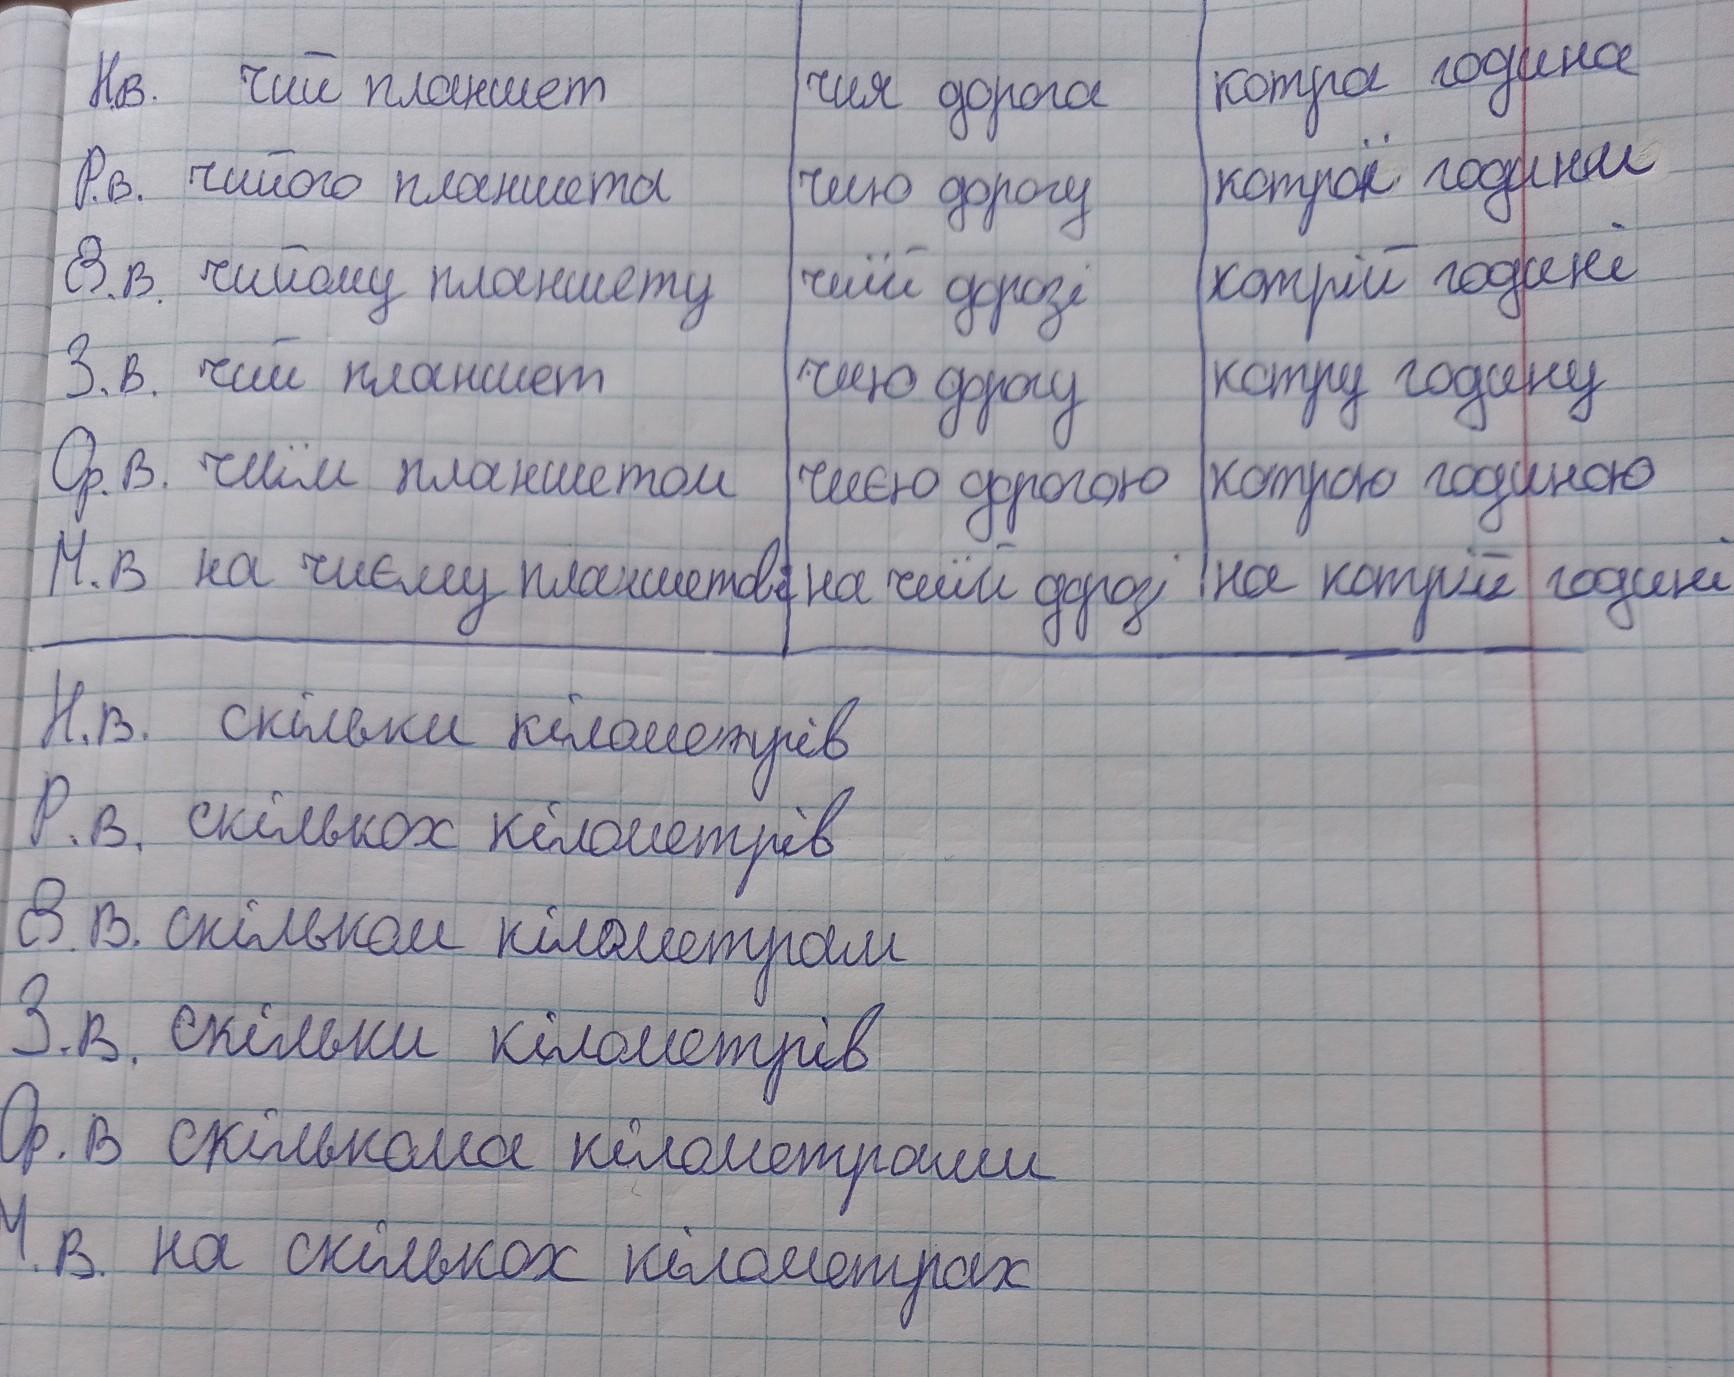 Н.в. чий планшет чия дорога котра година
Р.в. чийого планшета чию дорогу котрої години
Д.в. чийому планшету чиїй дорозі котрій годині
З.в. чий планшет чию дорогу котру годину
Ор.в. чиїм планшетом чиєю дорогою котрою годиною
М.в на чиєму планшетові на чиїй дорозі на котрій годині
Н.в. скільки кілометрів
Р.в. скількох кілометрів
Д.в. скільком кілометрам
З.в. скільки кілометрів
Ор.в скількома кілометрами
М.в. на скількох кілометрах